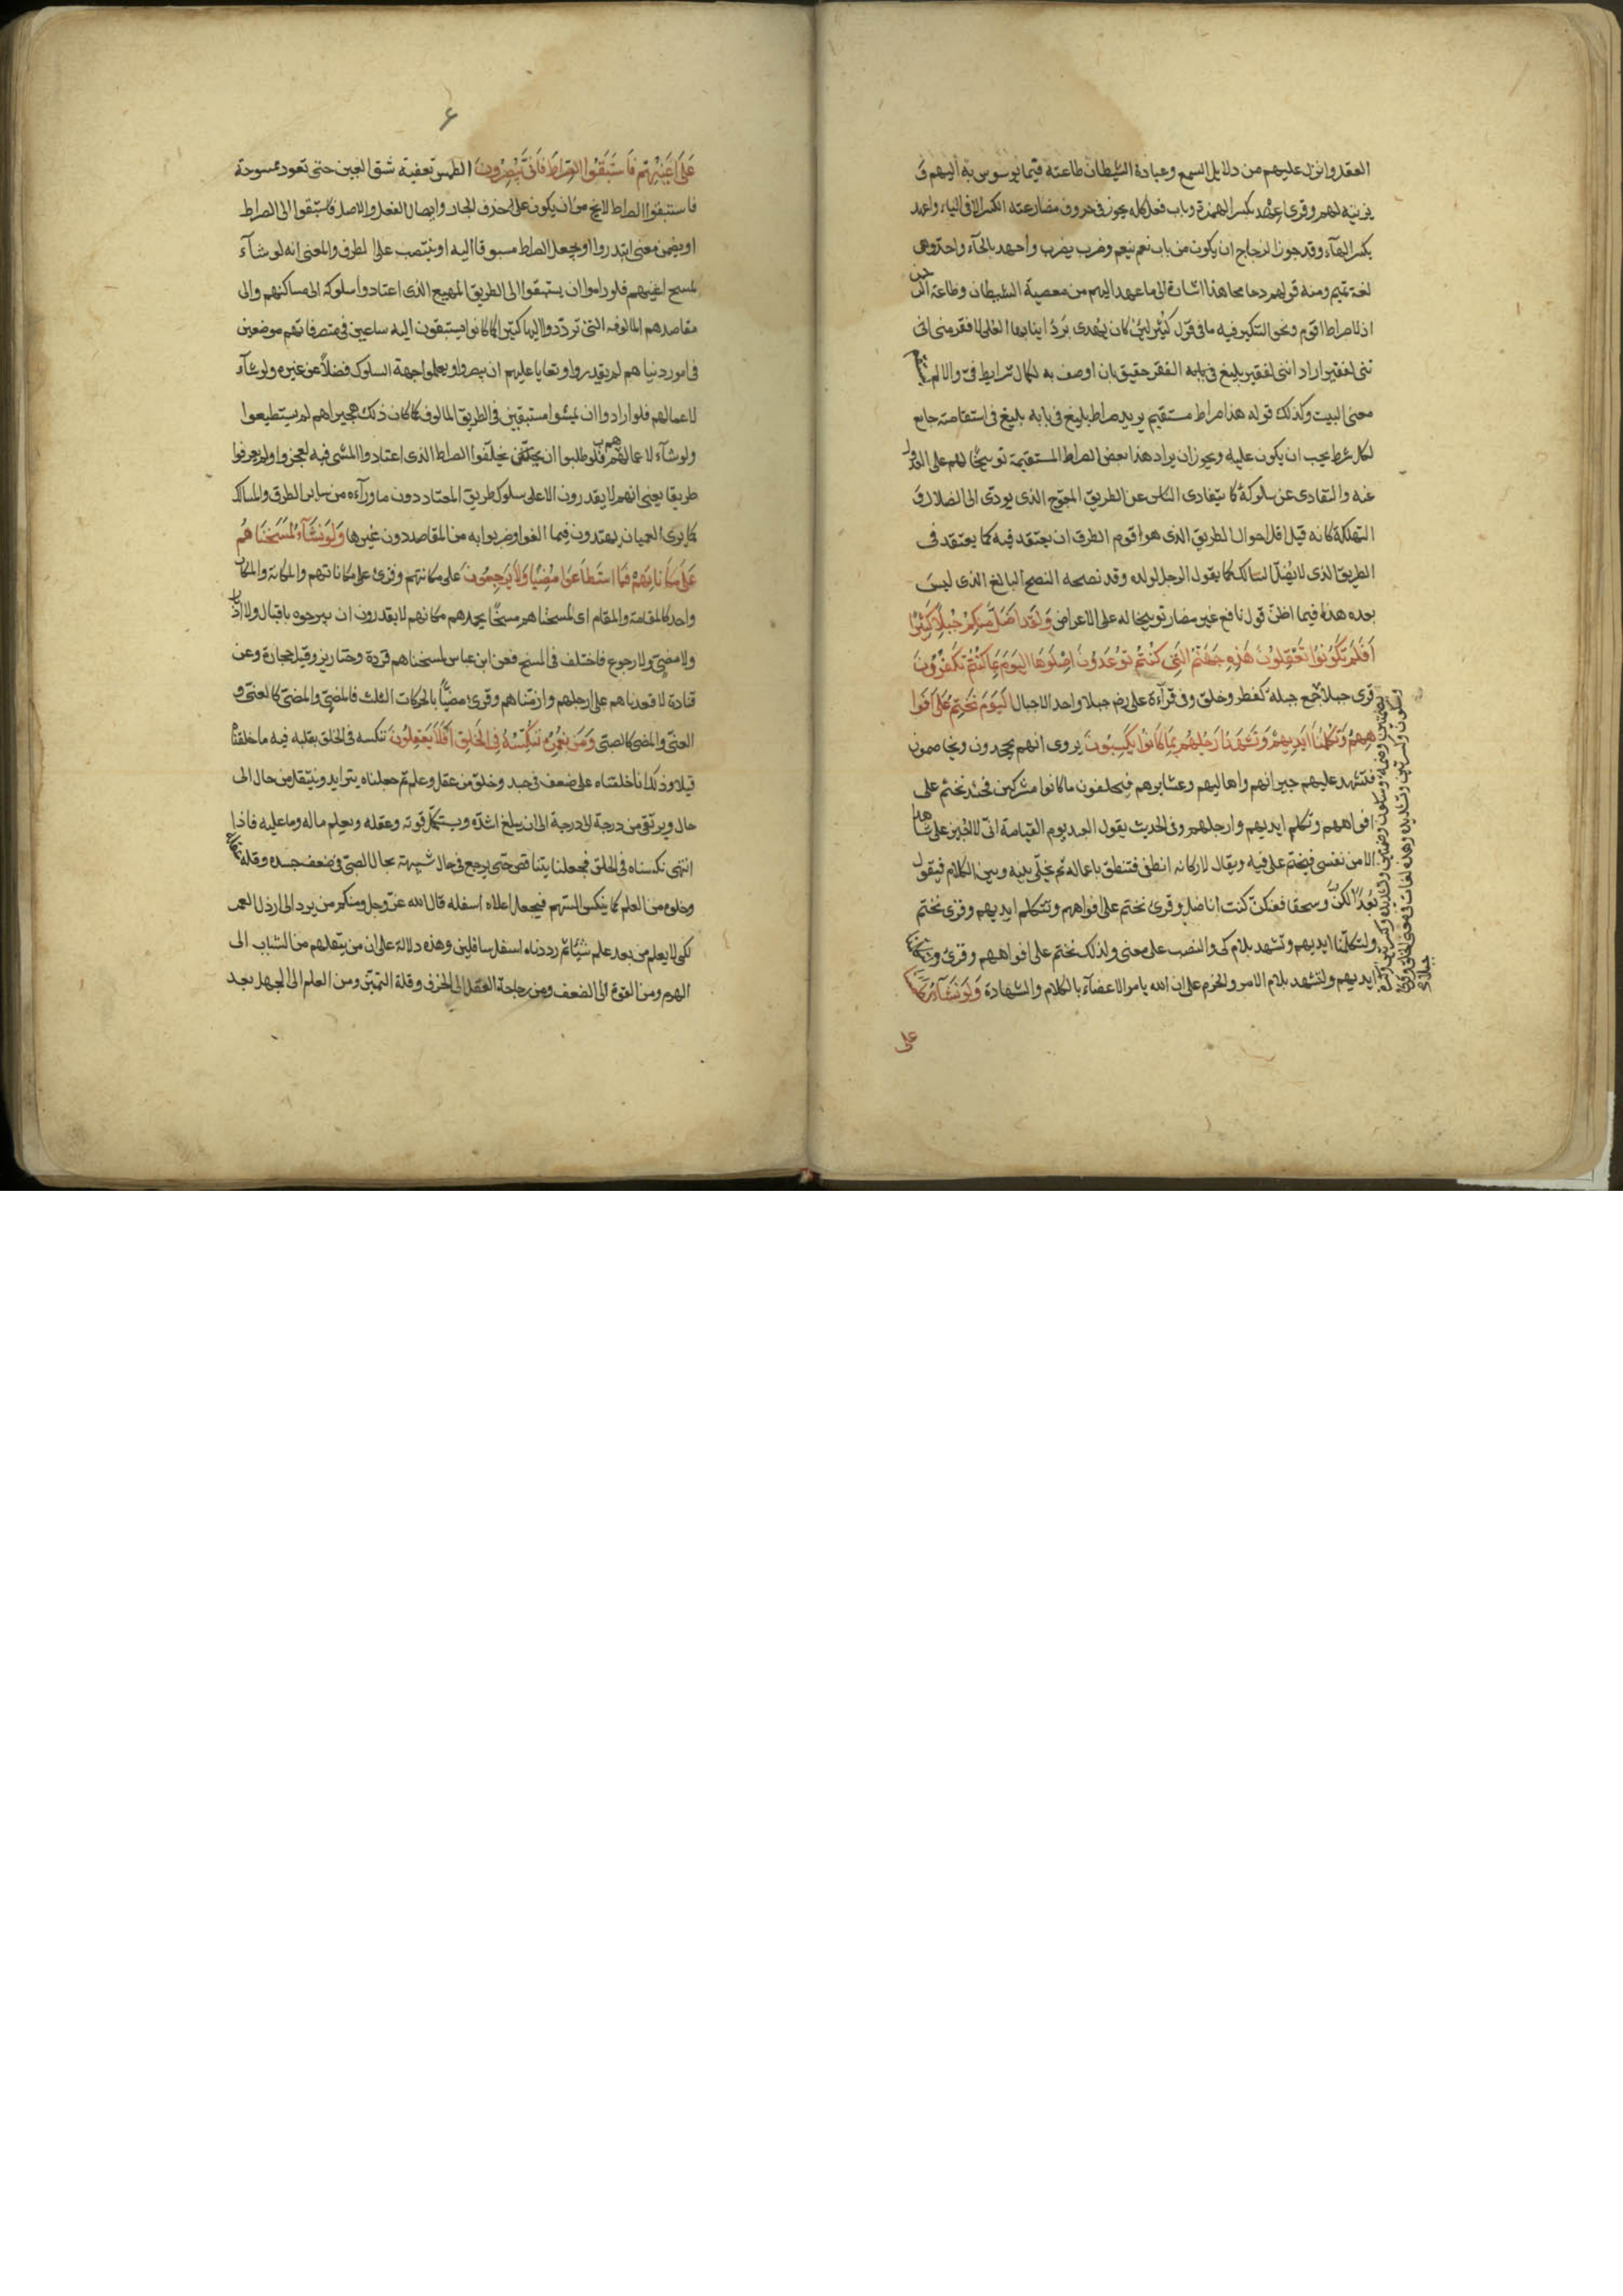 العقل وانزل عليهم من دلايل السمع وعبادة الشيطان طاعته فيما يوسوس به اليهم و
يزينه لهم وقرى اعهد بكسر الهمزة وباب فعل كله يجوز فى حروف مضارعته الكسر الا فى الياء واعهد
بكسر الهاء وقد جوز الزجاج ان يكون من باب نعم ينعم وضرب يضرب واحهد بالحاء واحد وهى
لغة تميم ومنه قولهم دحا محا هذا اشارة الى ما عهد اليهم من معصية الشيطان وطاعة الرحمن
اذ لا صراط اقوم ونحو التنكير فيه ما فى قول كثير لئن كان يهدى برد انيابها العلى لافقر منى اننى
لفقير اراد اننى لفقير بليغ فى بابه الفقر حقيق بان اوصف به لكمال شرايط فى والا لم يستقم
معنى البيت وكذلك قوله هذا صراط مستقيم يريد صراط بليغ فى بابه بليغ فى استقامته جامع
لكل شرط يجب ان يكون عليه ويجوز ان يراد هذا بعض الصراط المستقيمة توبيخا لهم على العدول
عنه والتفادى عن سلوكه كما يتفادى الناس عن الطريق المعوج الذى يودى الى الضلال و
التهلكة كانه قيل اقل احوال الطريق الذى هو اقوم الطرق ان يعتقد فيه كما يعتقد فى
الطريق الذى لا يضل السالك كما يقول الرجل لولده وقد نصحه النصح البالغ الذى ليس
بعده هذا فيما اظن قول نافع غير ضار توبيخا له على الاعراض ولقد اضل منكم جبلا كثيرا
افلم تكونوا تعقلون هذه جهنم التى كنتم توعدون اصلوها اليوم بما كنتم تكفرون
قرى جبلا جمع جبلة كفطر وخلق وفى قراءة على رض جيلا واحد الاجيال اليوم نختم على افوا
ههم وتكلمنا ايديهم وتشهد ارجلهم بما كانوا يكسبون يروى انهم يجحدون ويخاصمون
فتشهد عليهم جيرانهم واهاليهم وعشايرهم فيحلفون ما كانوا مشركين فحينئذ نختم على
افواههم وتكلم ايديهم وارجلهم وفى الحديث يقول العبد يوم القيامة انى لا اجيز على شاهدا
الا من نفسى فيختم على فيه ويقال لاركانه انطقى فتنطق باعماله ثم يخلى بينه وبين الكلام فيقول
بعدا لكن وسحقا فعنكن كنت اناضل وقرى نختم على افواههم وتتكلم ايديهم وقرى نختم
ولتكلمنا ايديهم وتشهد بلام كى والنصب على معنى ولذلك نختم على افواههم وقرى
ايديهم ولتشهد بلام الامر والجزم على ان الله يامر الاعضاء بالكلام والشهادة ولو نشاء لطمسنا
على
على اعينهم فاستبقوا الصراط فانى يبصرون الطمس تعفية شق العين حتى تعود ممسوحة
فاستبقوا الصراط لا يخ من ان يكون على حذف الجار وايصال الفعل والاصل فاستبقوا الى الصراط
او يضمن معنى ابتدروا او يجعل الصراط مسبوقا لا اليه او ينتصب على الظرف والمعنى انه لو شاء
لمسح اعينهم فلو راموا ان يستبقوا الى الطريق المهيع الذى اعتادوا سلوكه الى مساكنهم والى
مقاصدهم المالوفه التى ترددوا اليها كثيرا كما كانوا يستبقون اليه ساعين فى متصرفاتهم موضعين
فى امور دنياهم لم يقدروا وتعايا عليهم ان يبصروا ويعلموا جهة السلوك فضلا عن غيره ولو شاء
لاعمالهم فلو ارادوا ان يمشوا مستبقين فى الطريق المالوف كما كان ذلك هجيراهم لم يستطيعوا
ولو شاء لاعمالهم فلو طلبوا ان يخلفوا الصراط الذى اعتادوا المشى فيه لعجزوا ولم يعرفوا
طريقا يعنى انهم لا يقدرون الا على سلوك طريق المعتاد دون ما وراءه من ساير الطرق والمسالك
كما يرى العميان يهتدون فيما الفوا وضربوا به من المقاصد دون غيرها ولو نشاء لمسخناهم
على مكانتهم فما استطاعوا مضيا ولا يرجعون على مكانتهم وقرى على مكاناتهم والمكانة والمكان
واحد كالمقامة والمقام اى لمسخناهم مسخا يجمدهم مكانهم لا يقدرون ان يبرحوه باقبال ولا ادبار
ولا مضى ولا رجوع فاختلف فى المسخ فعن ابن عباس لمسخناهم قردة وخنازير وقيل حجارة وعن
قتادة لاقعدناهم على ارجلهم وازمناهم وقرى مضيا بالحركات الثلث فالمضى والمضى كالعتى و
العتى والمضى كالصبى ومن نعمره ننكسه فى الخلق افلا يعقلون ننكسه فى الخلق نقلبه فيه ما خلقناه
قبلا وذلك انا خلقناه على ضعف فى جسد وخلو من عقل وعلم ثم جعلناه يتزايد وينتقل من حال الى
حال ويرتقى من درجة الى درجة الى ان يبلغ اشده ويستكمل قوته وعقله ويعلم ماله وما عليه فاذا
انتهى نكسناه فى الخلق فجعلناه يتناقص حتى يرجع فى حال شبيهة بحال الصبى فى ضعف جسده وقلة عقله
وخلوه من العلم كما ينكس السهم فيجعل اعلاه اسفله قال الله عز وجل ومنكم من يرد الى ارذل العمر
لكى لا يعلم من بعد علم شيئا ثم رددناه اسفل سافلين وهذه دلالة على ان من ينقلهم من الشباب الى
الهرم ومن القوة الى الضعف ومن رجاحة العقل الى الخرف وقلة التمييز ومن العلم الى الجهل بعد